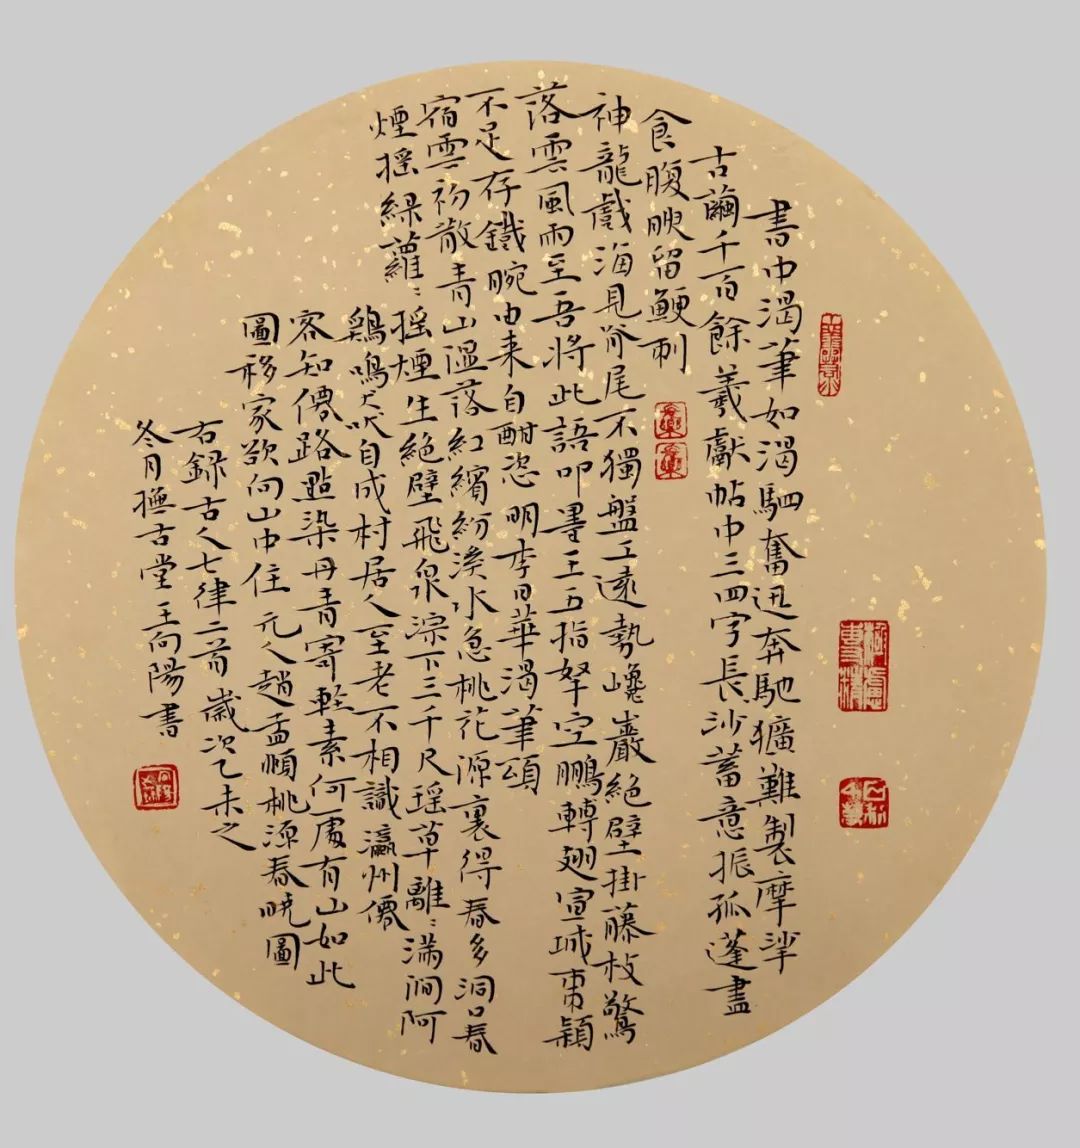 書中渴筆如渴駟奮迅奔馳獷難製摩挲
古繭千百餘羲獻帖中三四字長沙蓄意振孤蓬盡
食腹腴留鯁刺
神龍戲海見脊尾不獨盤工遠勢巉巖絕壁掛藤枝驚
落雲風雨至吾將此語叩墨王五指拏空鵬轉翅宣城棗穎
不足存鐵腕由來自酣恣明李日華渴筆頌
宿雲初散青山溫落紅繽紛溪水急桃花源裏得春多洞口春
煙搖綠蘿〻搖煙生絕壁飛泉淙下三千尺瑤草離〻滿澗阿
鷄鳴犬吠自成村居人至老不相識瀛州僊
客知僊路點染丹青寄輕素何處有山如此
圖移家欲向山中住元人趙孟頫桃源春曉圖
右録古人七律二首歲次乙未之
冬月撫古堂王向陽書